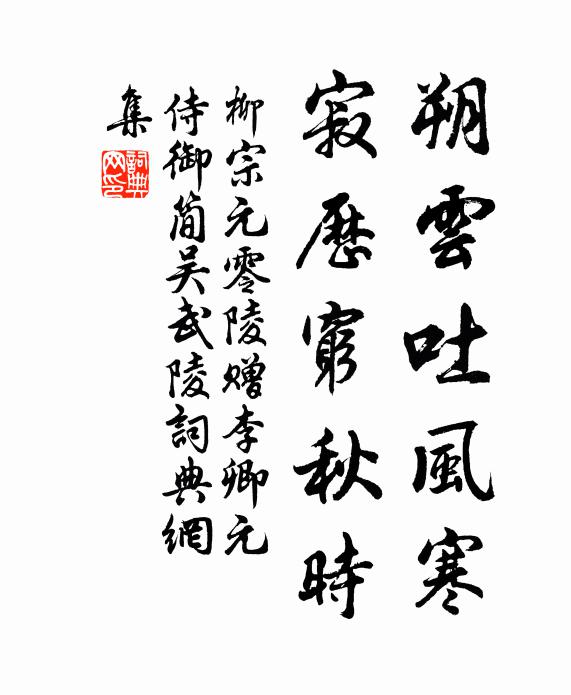 朔雲吐風寒
寂歷窮秋時
柳宗元零陵贈李卿元
侍御簡吳武陵詞典網
集
詞典
网印